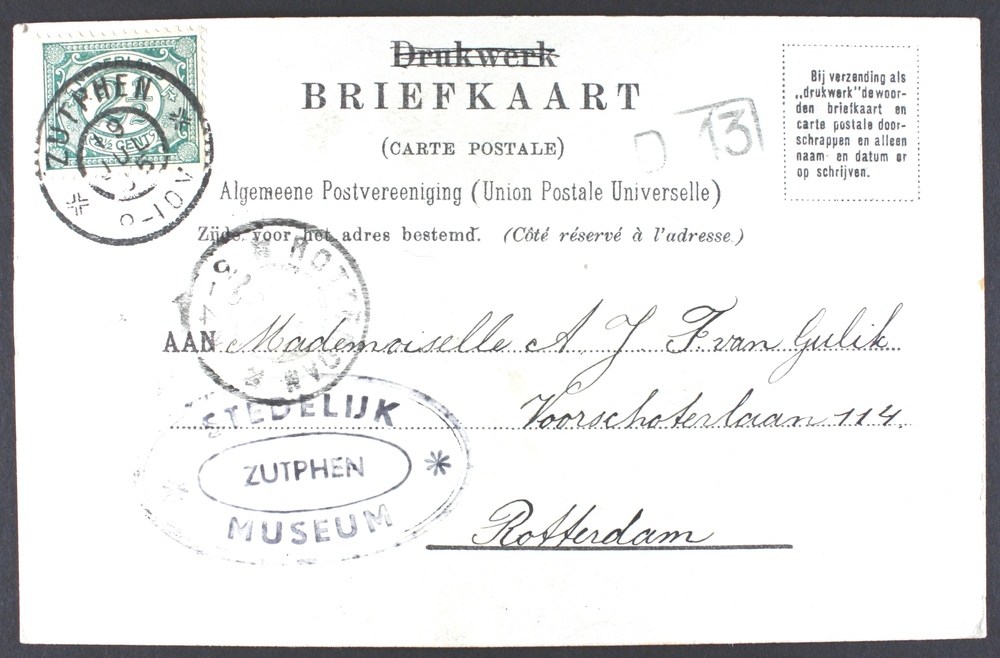 Drukwerk
BRIEFKAART
(CARTE POSTALE)
Algemeene Postvereeniging (Union Postale Universelle)
Zijde voor het adres bestemd. (Côté réservé à l'adresse.)
Bij verzending als
„drukwerk" de woor-
den briefkaart en
carte postale door-
schrappen en alleen
naam- en datum er
op schrijven.
NEDERLAND
2½
2½ CENT
ZUTPHEN
13
ROTTERDAM
AAN Mademoiselle A. J. F. van Gulik
Voorschoterlaan 114.
Rotterdam
STEDELIJK
ZUTPHEN
MUSEUM